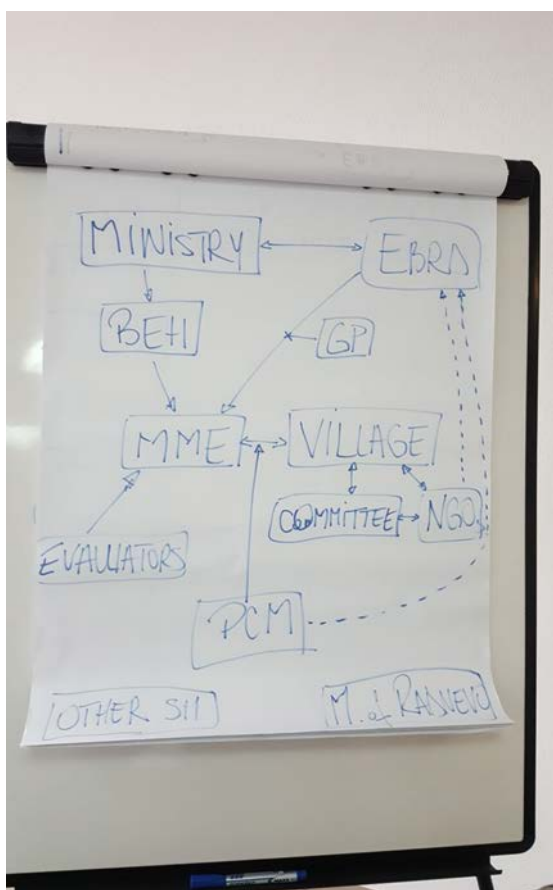 MINISTRY
EBRD
BEH
GP
MME
VILLAGE
COMMITTEE
NGO
EVALUATORS
PCM
OTHER SH
M. of RADNEVO